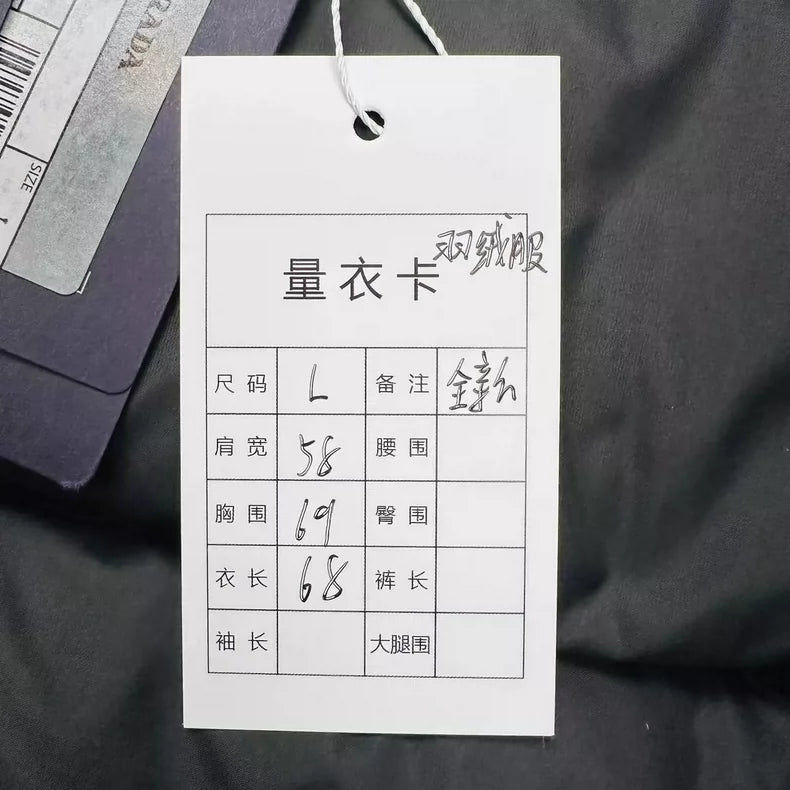 PRADA
SIZE
L
羽绒服
量衣卡
尺码 L 备注 全新
肩宽 58 腰围
胸围 69 臀围
衣长 68 裤长
袖长 大腿围